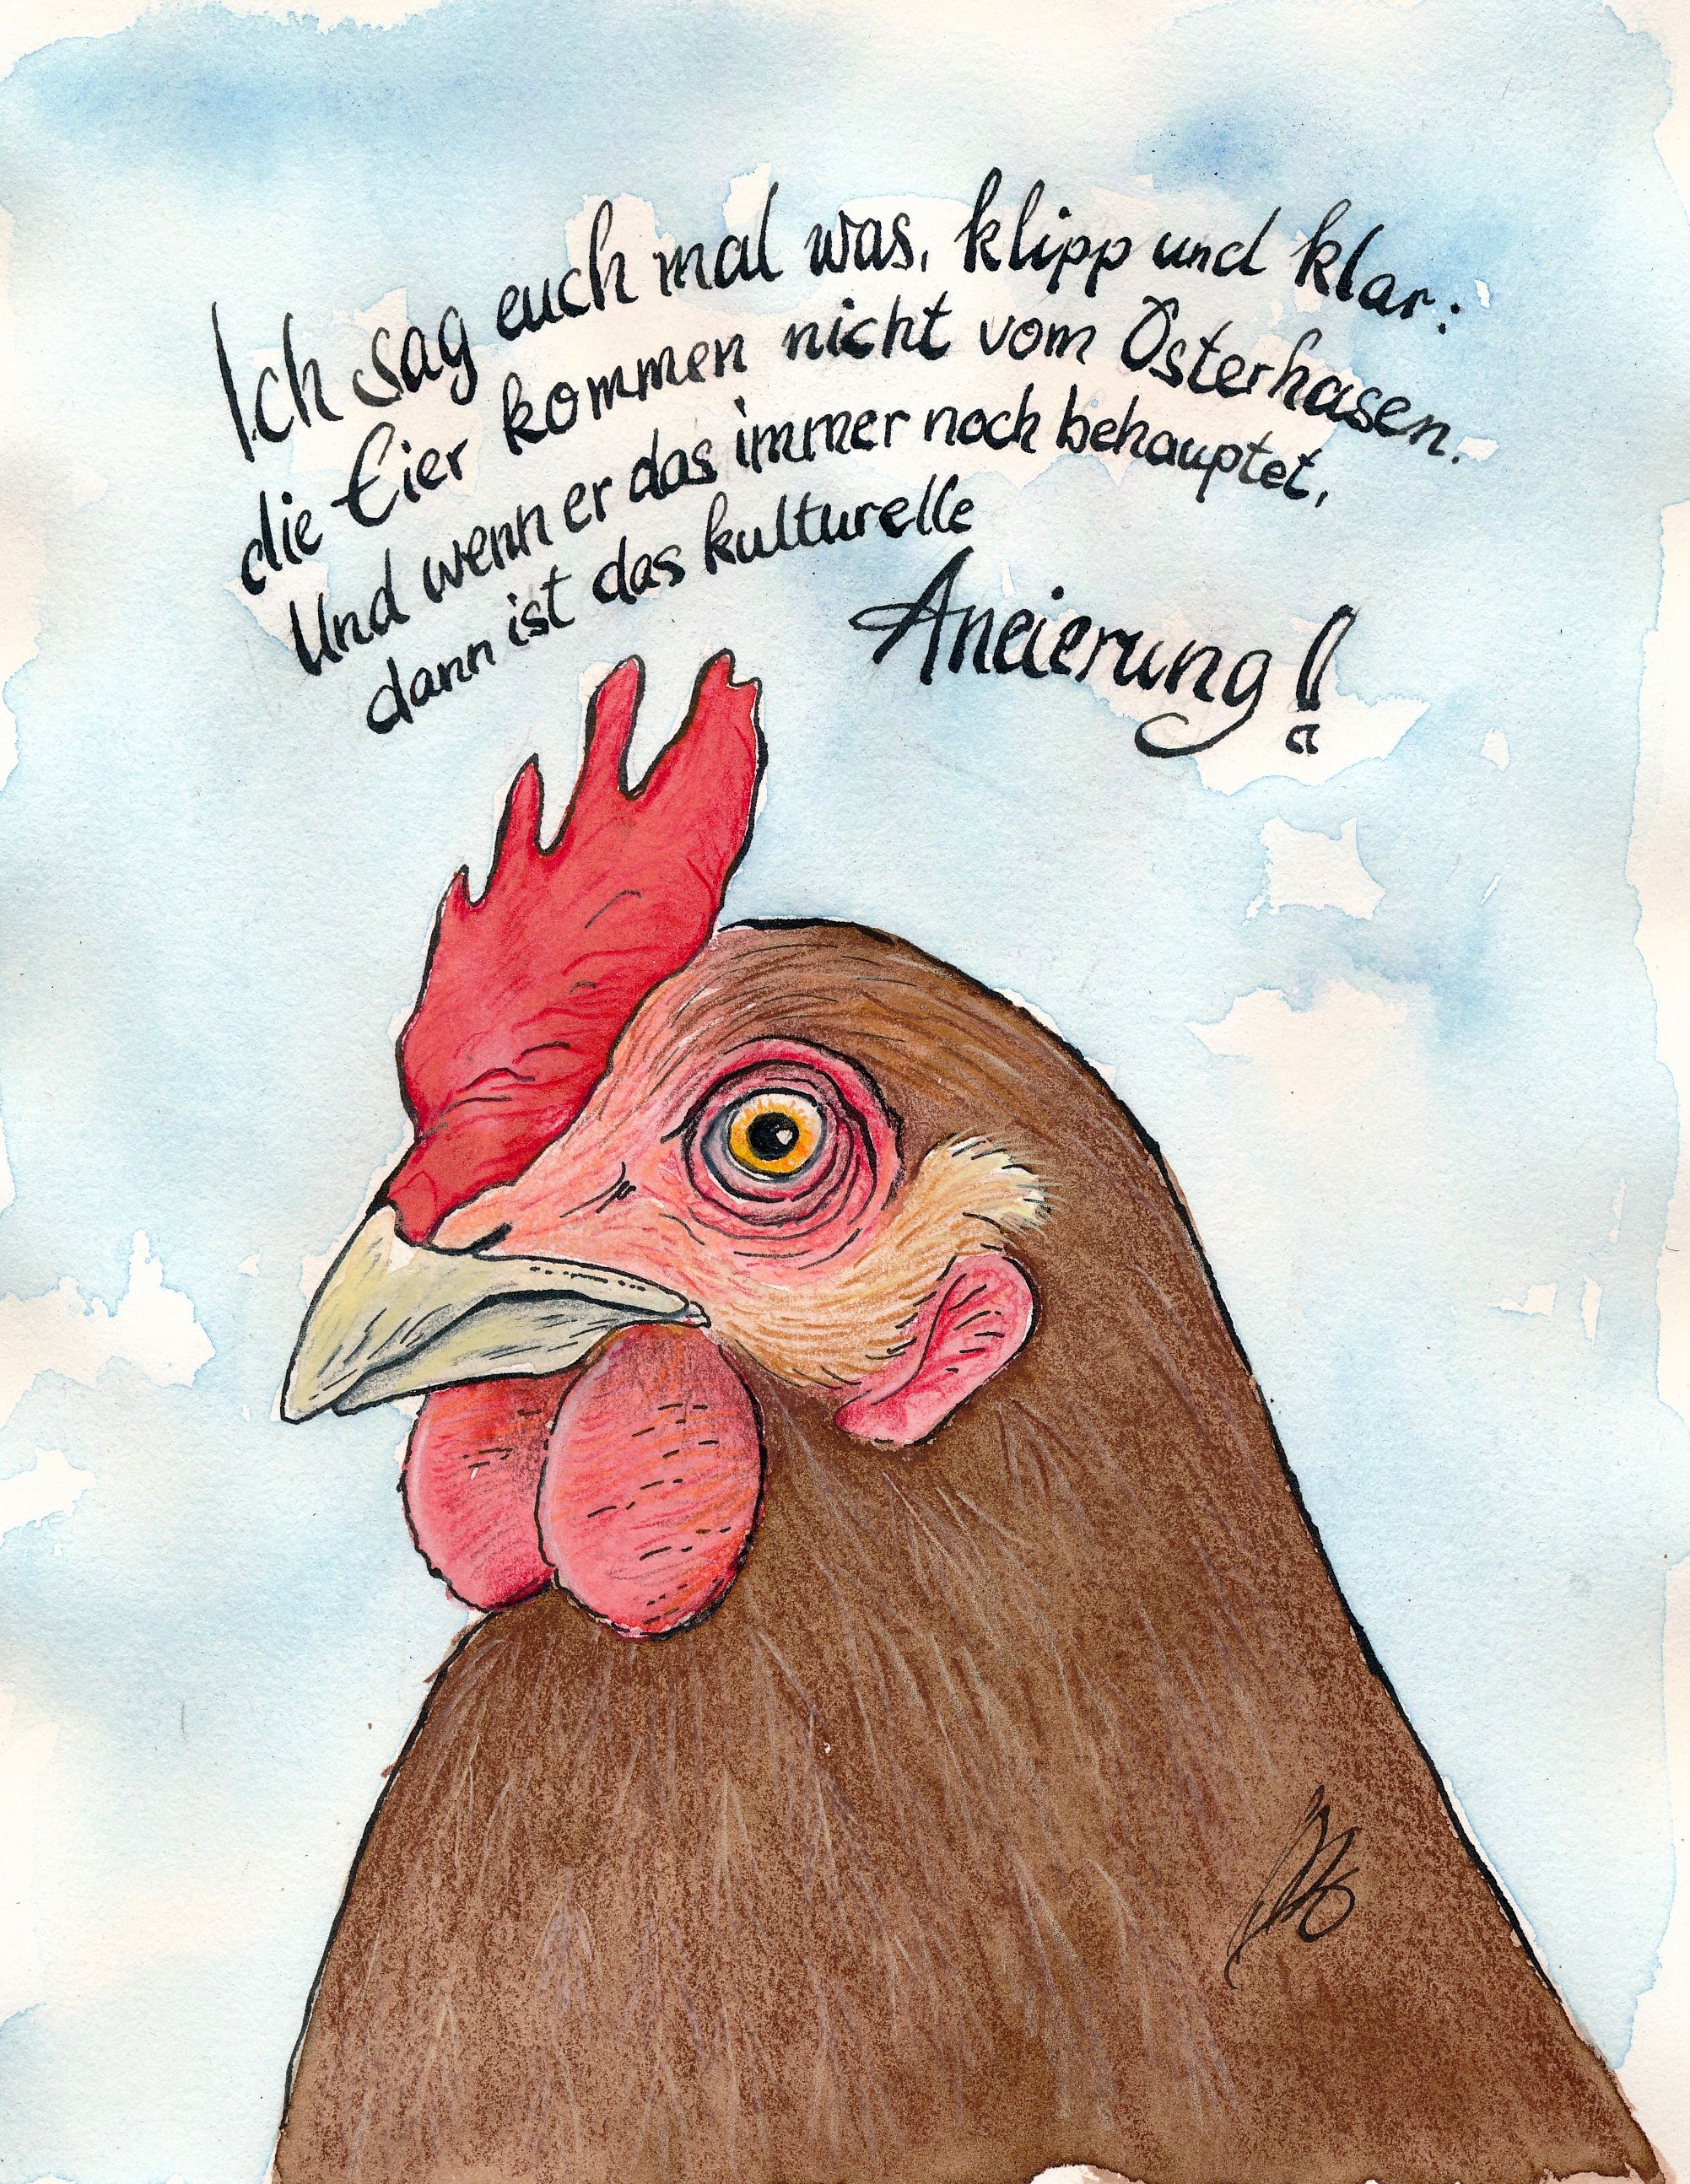 Ich sag euch mal was, klipp und klar:
die Eier kommen nicht vom Osterhasen.
Und wenn er das immer noch behauptet,
dann ist das kulturelle
Aneierung!